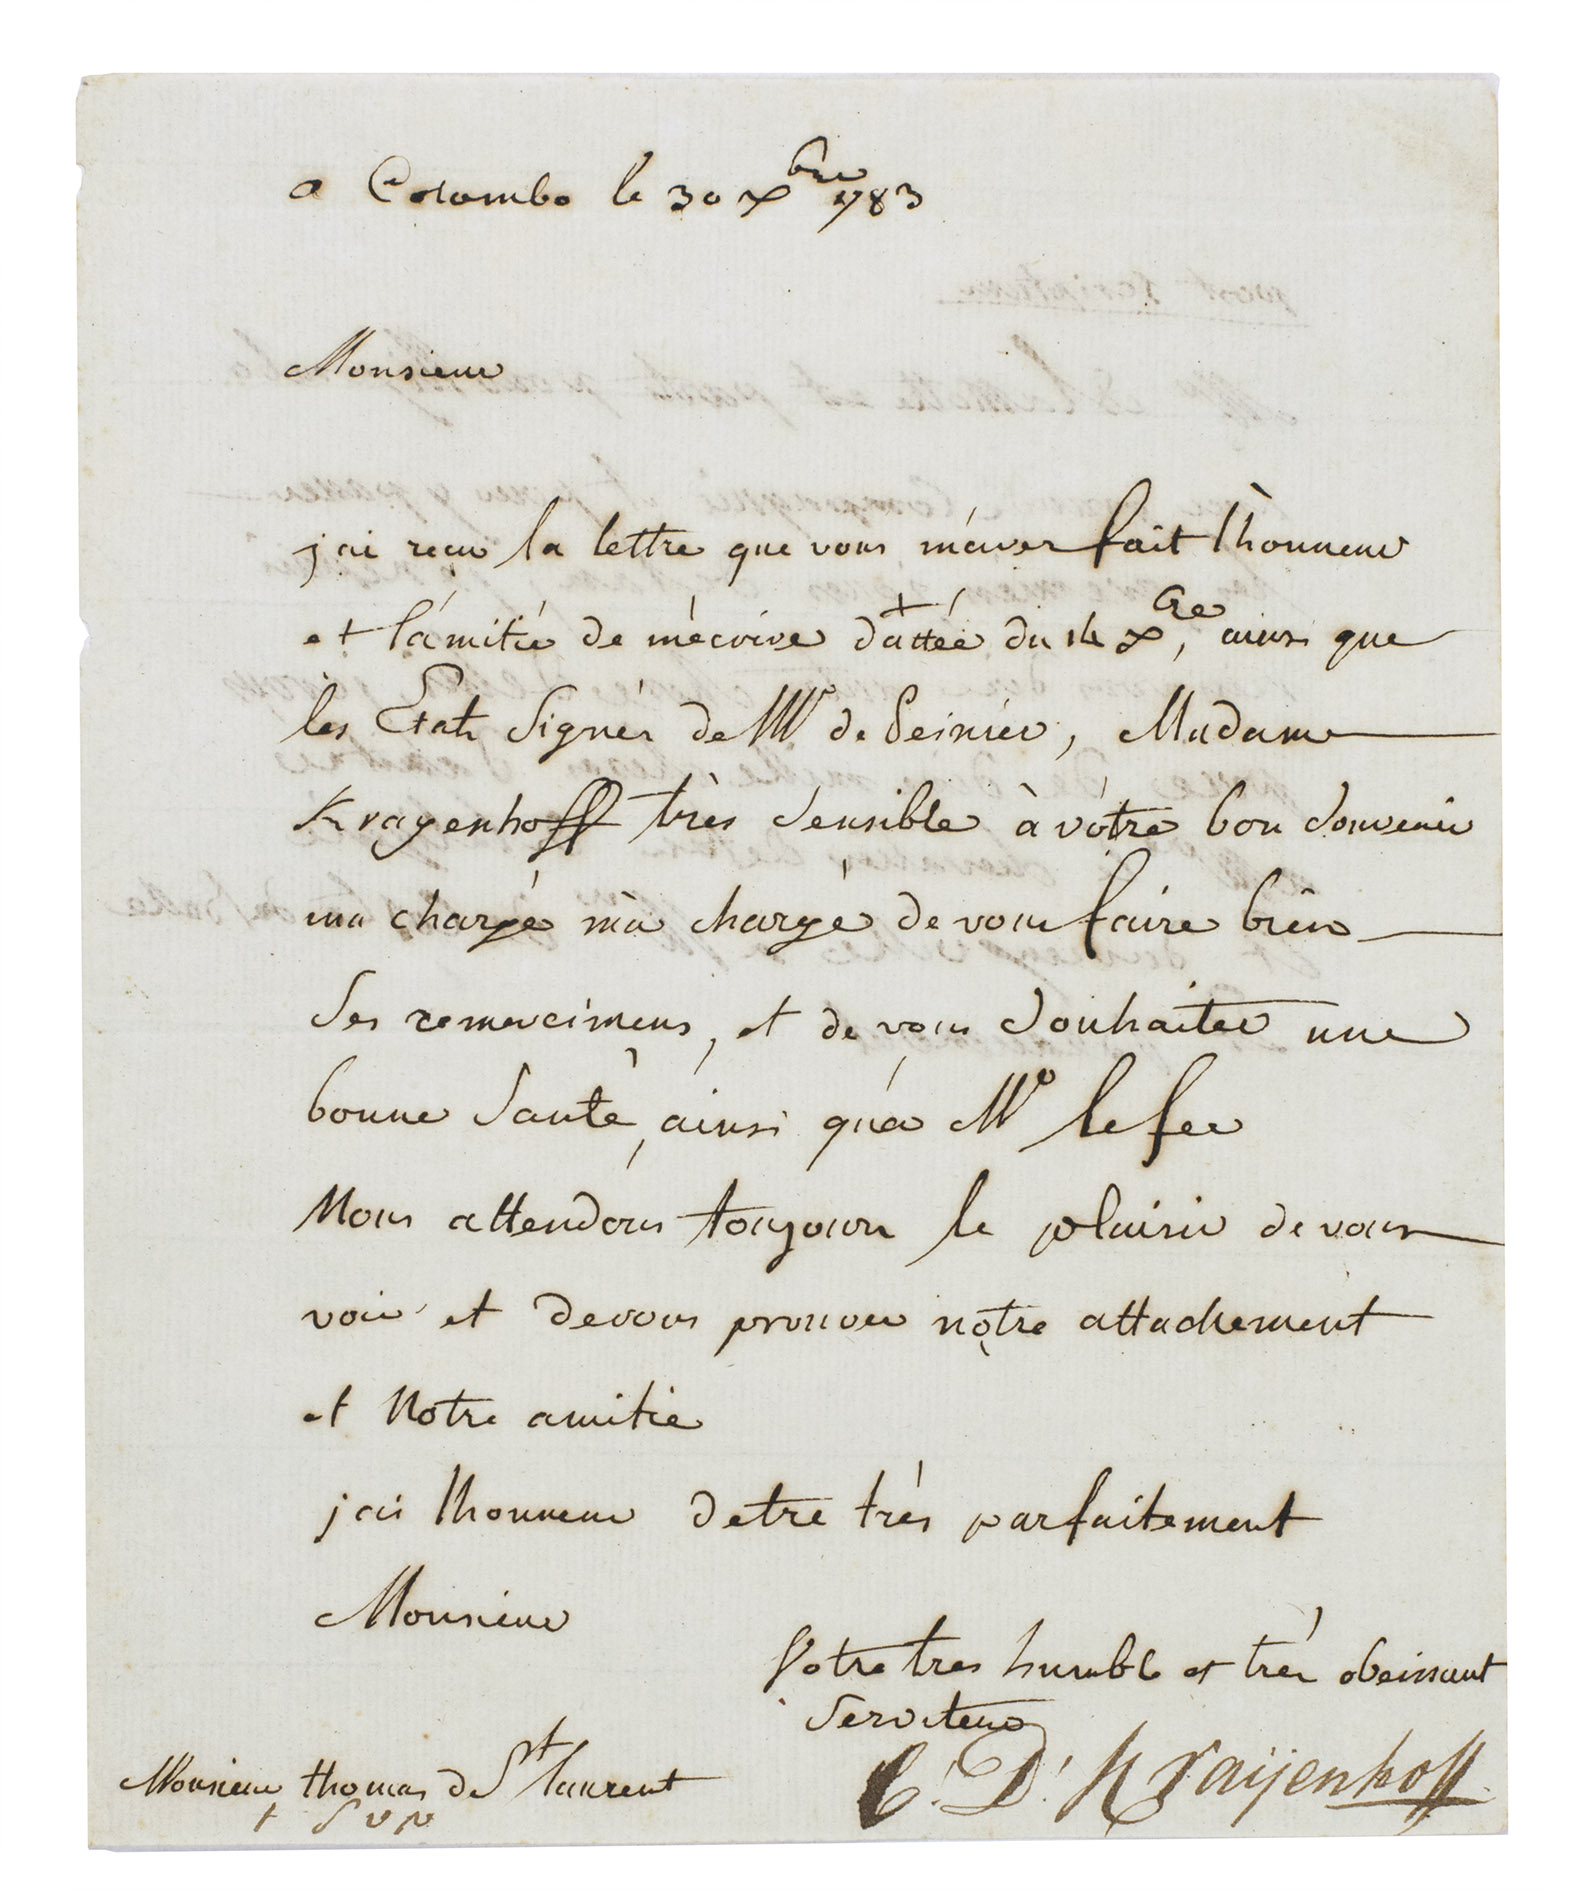 a Colombo le 30 Xbre 1783
Monsieur
j'ai reçu la lettre que vous m'avez fait l'honneur
et l'ámitié de m'écrire dattée du 14 Xbre, ainsi que
les Etats Signés de Mr de Peinier, Madame
Krayenhoff très Sensible à vòtre bon Souvenir
ma chargé m'a chargé de vous faire bien
Ses remercimens, et de vous Souhaiter une
bonne Santé, ainsi qu'a Mr le fer
Nous attendons toujours le plaisir de vous
voir et de vous prouver nòtre attachement
et Notre amitié
j'ai lhonneur detre très parfaitement
Monsieur
Votre tres humble et très obeissant
Serviteur
C: D: Kraijenhoff
Monsieur thomas de St laurent
T S V P
post Scriptum